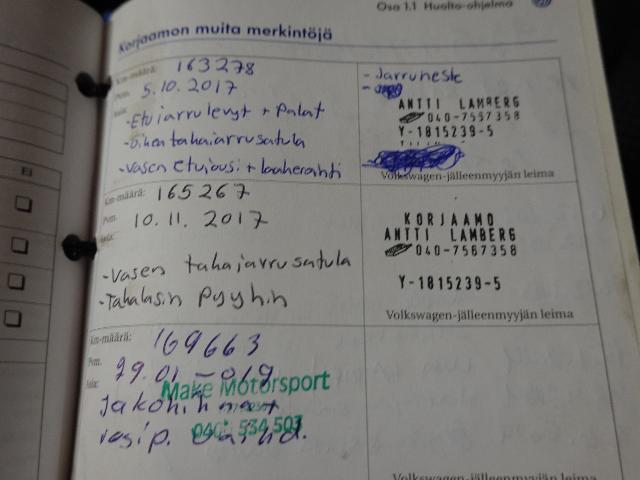 Osa 1.1 Huolto-ohjelma
Korjaamon muita merkintöjä
EI
Km-määrä: 163278
Pvm. 5.10.2017
-Etujarrulevyt + Palat
-Oikea takajarrusatula
-Vasen etujousi + laakerointi
- Jarruneste
ANTTI LAMBERG
040-7567358
Y-1815239-5
Volkswagen-jälleenmyyjän leima
Km-määrä: 165267
Pvm. 10.11.2017
-Vasen takajarrusatula
-Takalasin Pyyhin
KORJAAMO
ANTTI LAMBERG
040-7567358
Y-1815239-5
Volkswagen-jälleenmyyjän leima
Km-määrä: 169663
Pvm. 29.01-019
Make Motorsport
Jakohihnat
vesip. vaihd.
534 503
Volkswagen-jälleenmyyjän leima